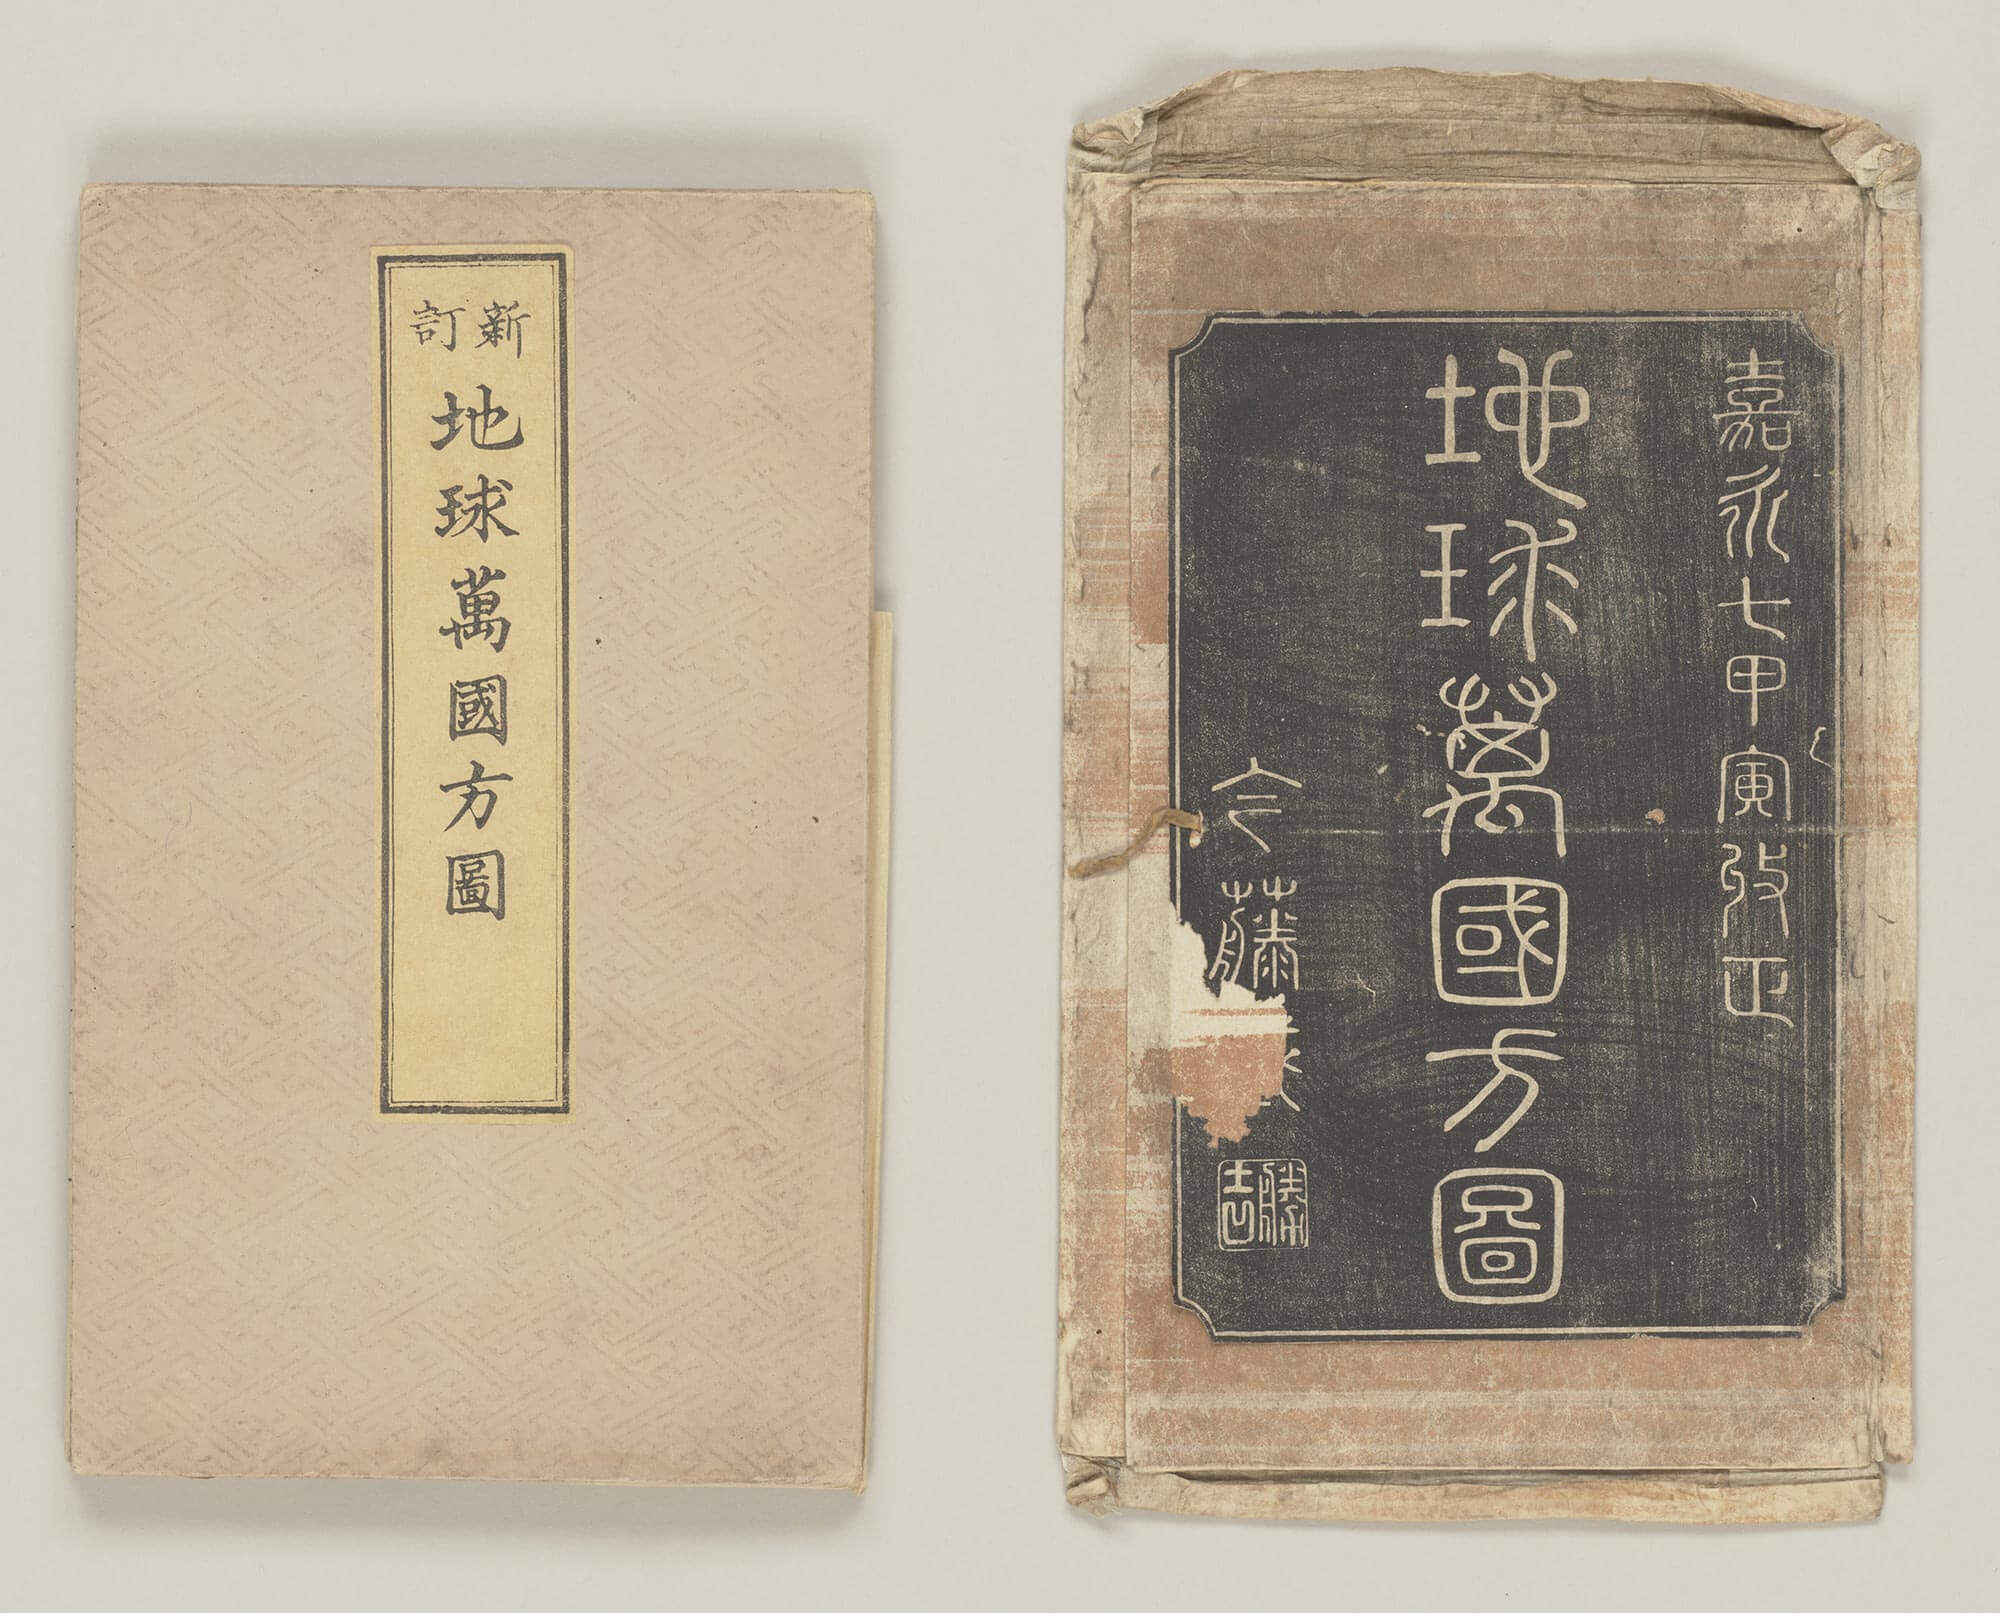 新訂
地球萬國方圖
嘉永七甲寅改正
地球萬國方圖
今藤